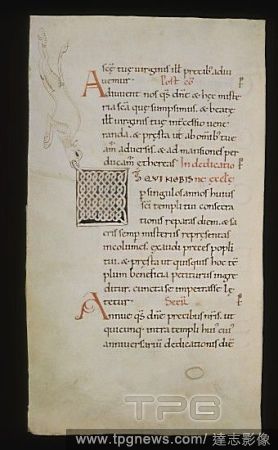 scę tuę virginis ill precib; adiu
vemur. Post cō
Adiuvent nos q̄s dn̄e & hęc miste
ria scā quę sumpsimus. & beatę
ill virginis tuę intcessio vene
randa. & pręsta ut ab omīb; tue
am adversis. & ad mansiones per
ducam ethereas. In dedicatio
DS QVI NOBIS ne ęcclę
p singulos annos huius
sci templi tui consecra
tionis reparas diem. & sa
cris semp misteriis repręsentas
incolumes. exaudi preces popli
tui. & pręsta ut quisquis hoc tē
plum beneficia petiturus ingre
ditur. cuncta se impetrasse lę
tetur. Secr̄
Annue q̄s dn̄e precibus n̄ris. ut
quicunq; intra templi hui' cui'
anniversariū dedicationis diē
TPG
www.tpgnews.com / 達志影像